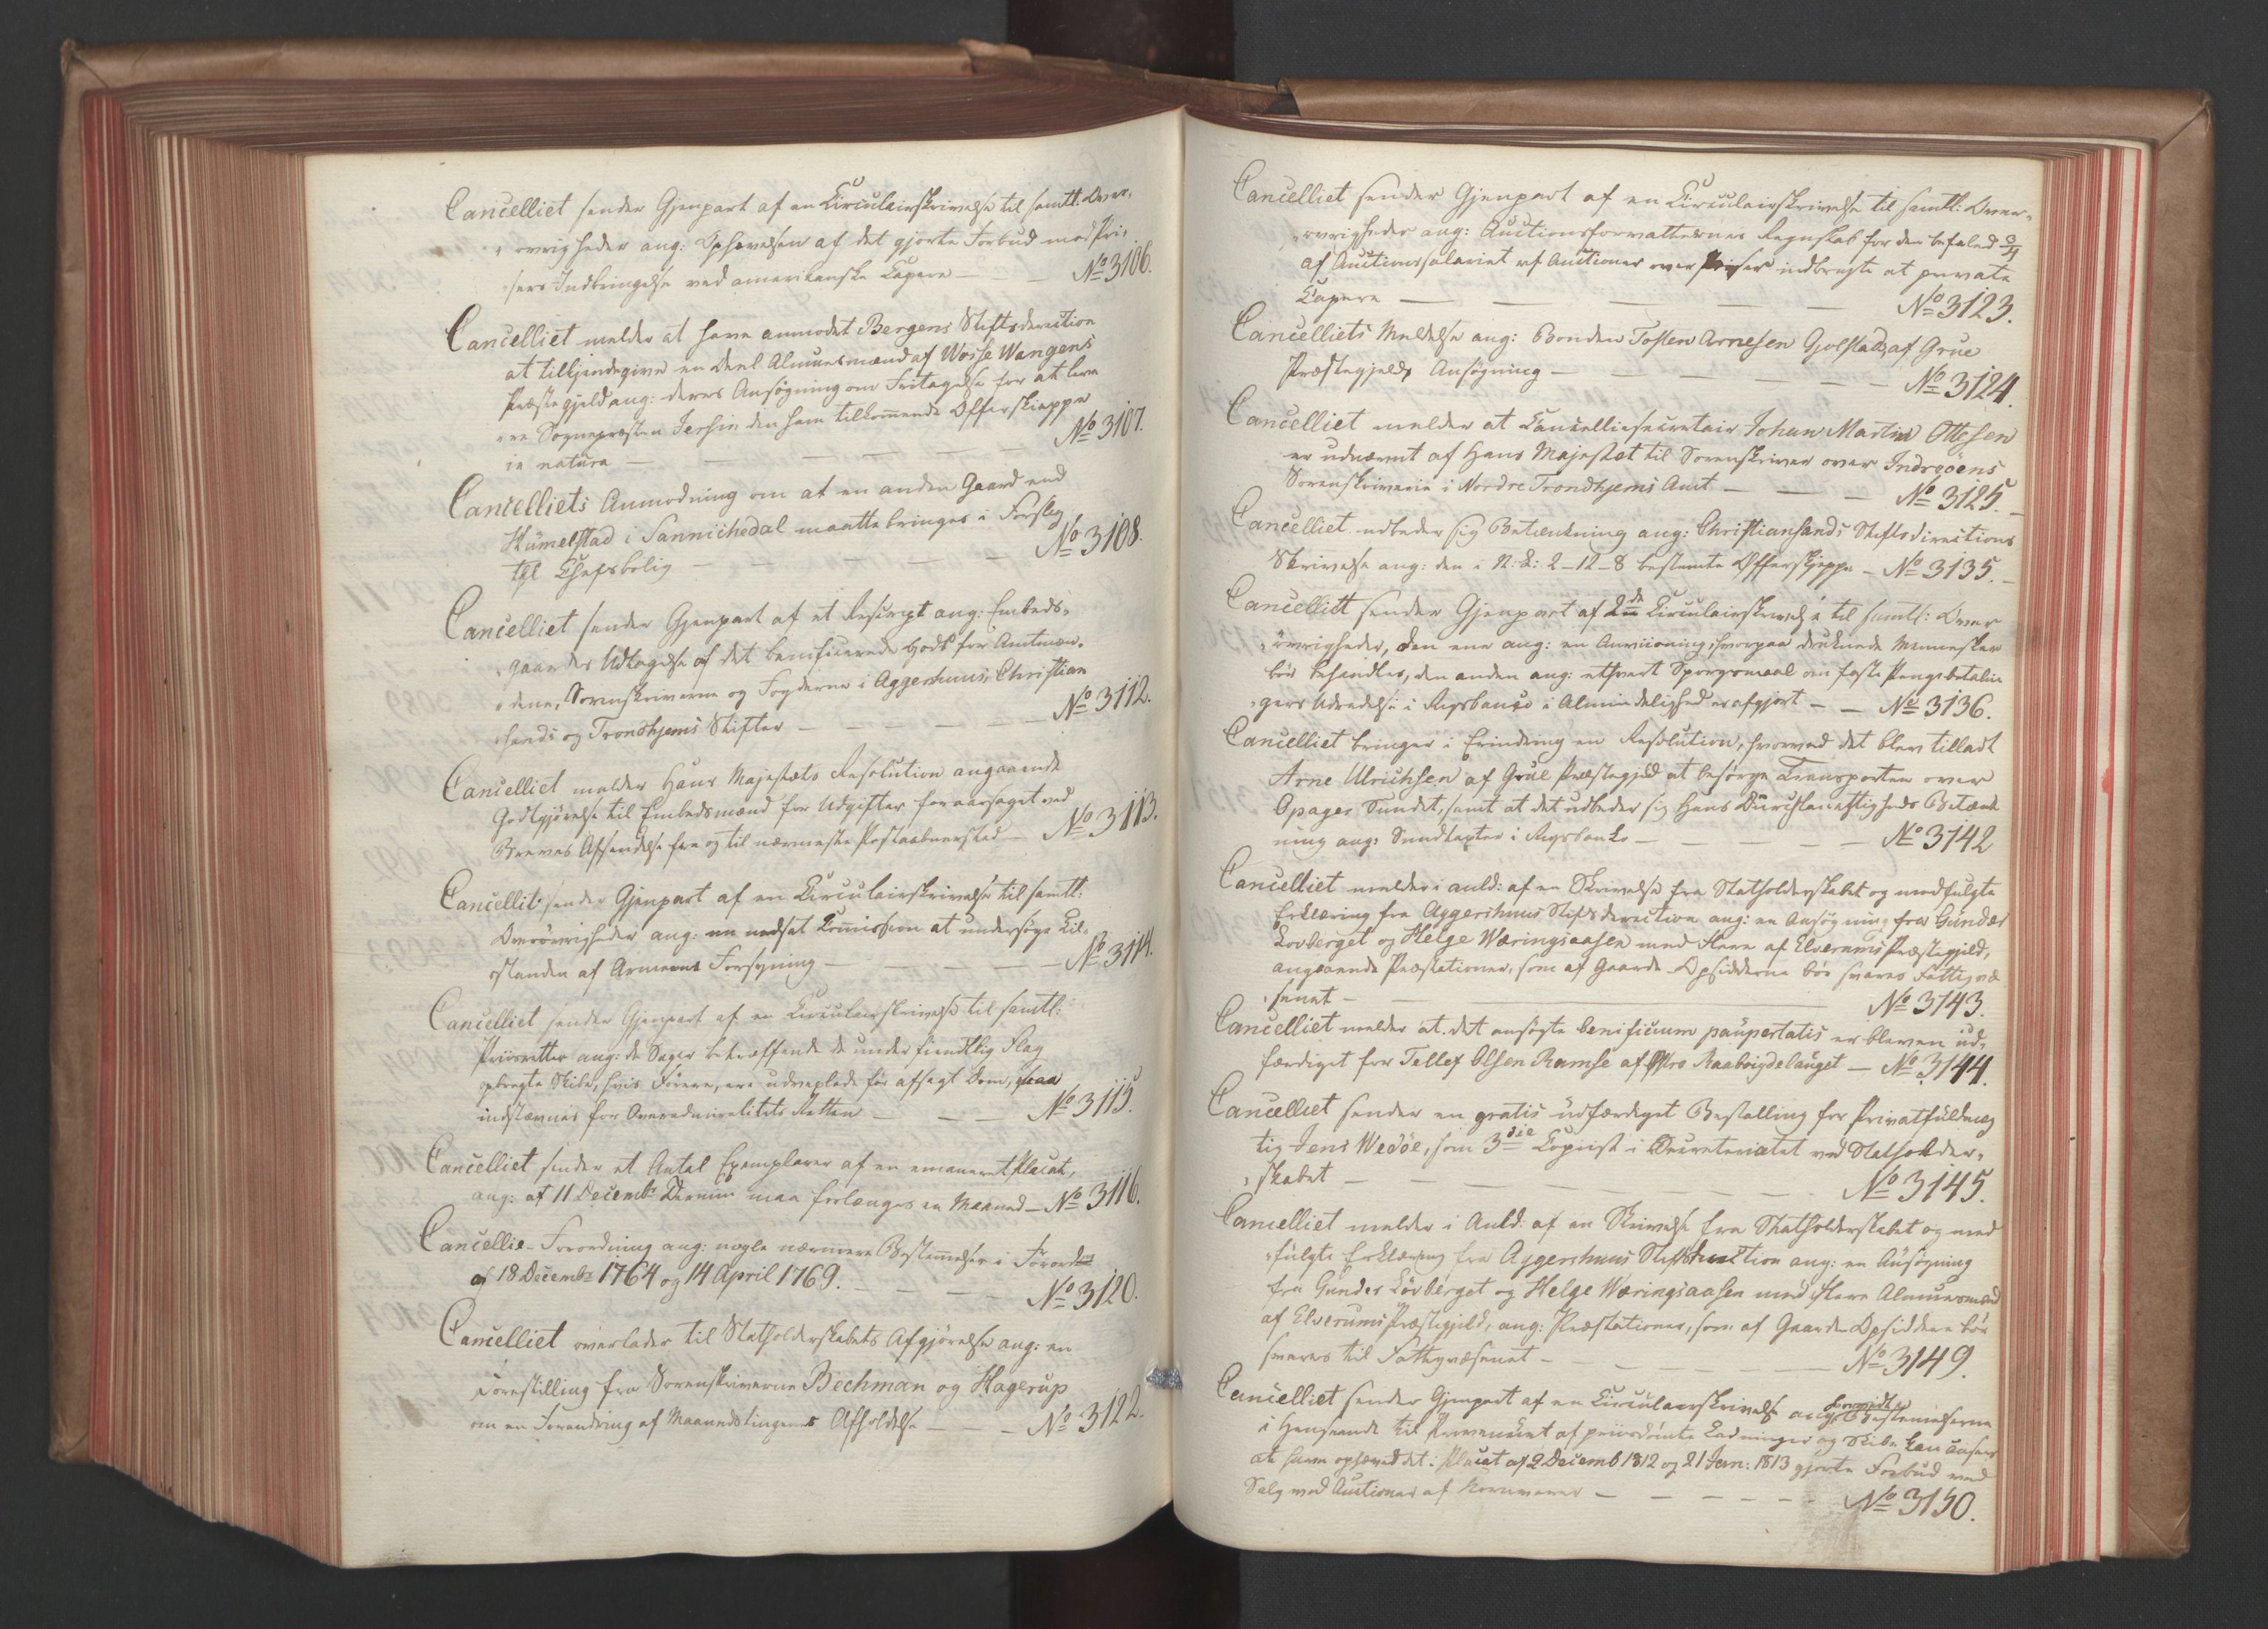 Cancelliet sender Gjenpart af en Circulairskrivelse til samtl: Over-
øvrigheder ang: Ophævelsen af det gjorte Forbud mod Pri-
sers Indbringelse ved amerikanske Capere — No 3106.
Cancelliet melder at have anmodet Bergens Stiftsdirection
at tilkjendegive en Deel Almuesmænd af Wosse Wangens
Præstegjeld ang: deres Ansøgning om Fritagelse for at leve-
re Sognepræsten Jersin den ham tilkommende Offerskieppe
in natura — No 3107.
Cancelliets Anmodning om at en anden Gaard end
Humelstad i Sannichedal maatte bringes i Forslag
til Chefsbolig — No 3108.
Cancelliet sender Gjenpart af et Rescript ang: Embeds-
gaardes Udtagelse af det beneficerede Gods for Amtmæn-
dene, Sorenskriverne og Fogderne i Aggershuus, Christian-
sands og Trondhjems Stifter — No 3112.
Cancelliet melder Hans Majestæts Resolution angaaende
Godtgjørelse til Embedsmænd for Udgifter foraarsaget ved
Breves Afsendelse fra og til nærmeste Postaabnersted — No 3113.
Cancellit sender Gjenpart af en Circulairskrivelse til samtl:
Overøvrigheder ang: en nedsat Comission at undersøge Til-
standen af Armeens Forsyning — No 3114.
Cancelliet sender Gjenpart af en Circulairskrivelse til samtl:
Priisretter ang: de Sager betræffende de under fiendtlig Flag
opbragte Skibe, hvis Førere, ere udvexlede før afsagt Dom, maa
indstævnes for Overadmiralitets Retten — No 3115.
Cancelliet sender et Antal Exemplarer af en emaneret Placat,
ang: at 11 Decembr Termin maa forlænges en Maaned — No 3116.
Cancellie-Forordning ang: nogle nærmere Bestemmelser i Forord
af 18 Decembr 1764 og 14 April 1769. — No 3120.
Cancelliet overlader til Statholderskabets Afgjørelse ang: en
Forestilling fra Sorenskriverne Bechman og Hagerup
om en Forandring af Maanedstingenes Afholdelse — No 3122.
Cancelliet sender Gjenpart af en Circulairskrivelse til samtl: Over-
øvrigheder ang: Auctionsforvalternes Regnskab for den befalede 3/4
af Auctionssalariet af Auctioner over Priser indbragte af private
Capere — No 3123.
Cancelliets Meldelse ang: Bonden Tosten Arnesen Golstad, af Grue
Præstegjelds Ansøgning — No 3124.
Cancelliet melder at Cancelliesecretair Johan Martin Ottesen
er udnævnt af Hans Majestæt til Sorenskriver over Inderøens
Sorenskriverie i Nordre Trondhjems Amt — No 3125.
Cancelliet udbeder sig Betænkning ang: Christiansands Stiftsdirections
Skrivelse ang: den i N: L: 2-12-8 bestemte Offerskjeppe — No 3135.
Cancelliet sender Gjenpart af 2de Circulairskrivelse til samtl: Over-
øvrigheder, den ene ang: en Anviisning, hvorpaa druknede Mennesker
bør behandles, den anden ang: ethvert Spørgsmaal om faste Pengebetalin-
gers Udredelse i Rigsbanco i Almindelighed er afgjort — No 3136.
Cancelliet bringer i Erindring en Resolution, hvorved det blev tilladt
Arne Ulrichsen af Grue Præstegjeld at besørge Transporten over
Opager Sundet, samt at det udbeder sig Hans Durchlauchtigheds Betænk-
ning ang: Sundtaxter i Rigsbanko — No 3142
Cancelliet melder i Anld: af en Skrivelse fra Statholderskabet og medfulgte
Erklæring fra Aggershuus Stiftsdirection ang: en Ansøgning fra Gunder
Lovberget og Helge Wæringsaasen med flere af Elverums Præstegjeld,
angaaende Præstationer, som af Gaarde-Opsidderne bør svares Fattigvæ-
senet — No 3143.
Cancelliet melder at det ansøgte beneficium paupertatis er bleven ud-
færdiget for Tellef Olsen Ramse af Østre Raabøigdelauget — No 3144.
Cancelliet sender en gratis udfærdiget Bestalling for Privatfuldmæg-
tig Jens Wedøe, som 3die Copiist i Secreteriatet ved Statholder-
skabet — No 3145.
Cancelliet melder i Anld: af en Skrivelse fra Statholderskabet og med-
fulgte Erklæring fra Aggershuus Stiftsdirection ang: en Ansøgning
fra Gunder Lövberget og Helge Wæringsaasen med flere Almuesmænd
af Elverums Præstegjeld, ang: Præstationer, som af Gaarde Opsiddere bør
svares til Fattigvæsenet — No 3149.
Cancelliet sender Gjenpart af en Circulairskrivelse ang: hvorvidt Bestemelserne
i Henseende til Provenuet af priisdømte Ladninger og Skibe kan ansees
at have ophævet det i Placat af 2 Decemb 1812 og 21 Jan: 1813 gjorte Forbud mod
Salg ved Auctioner af Kornvarer — No 3150.